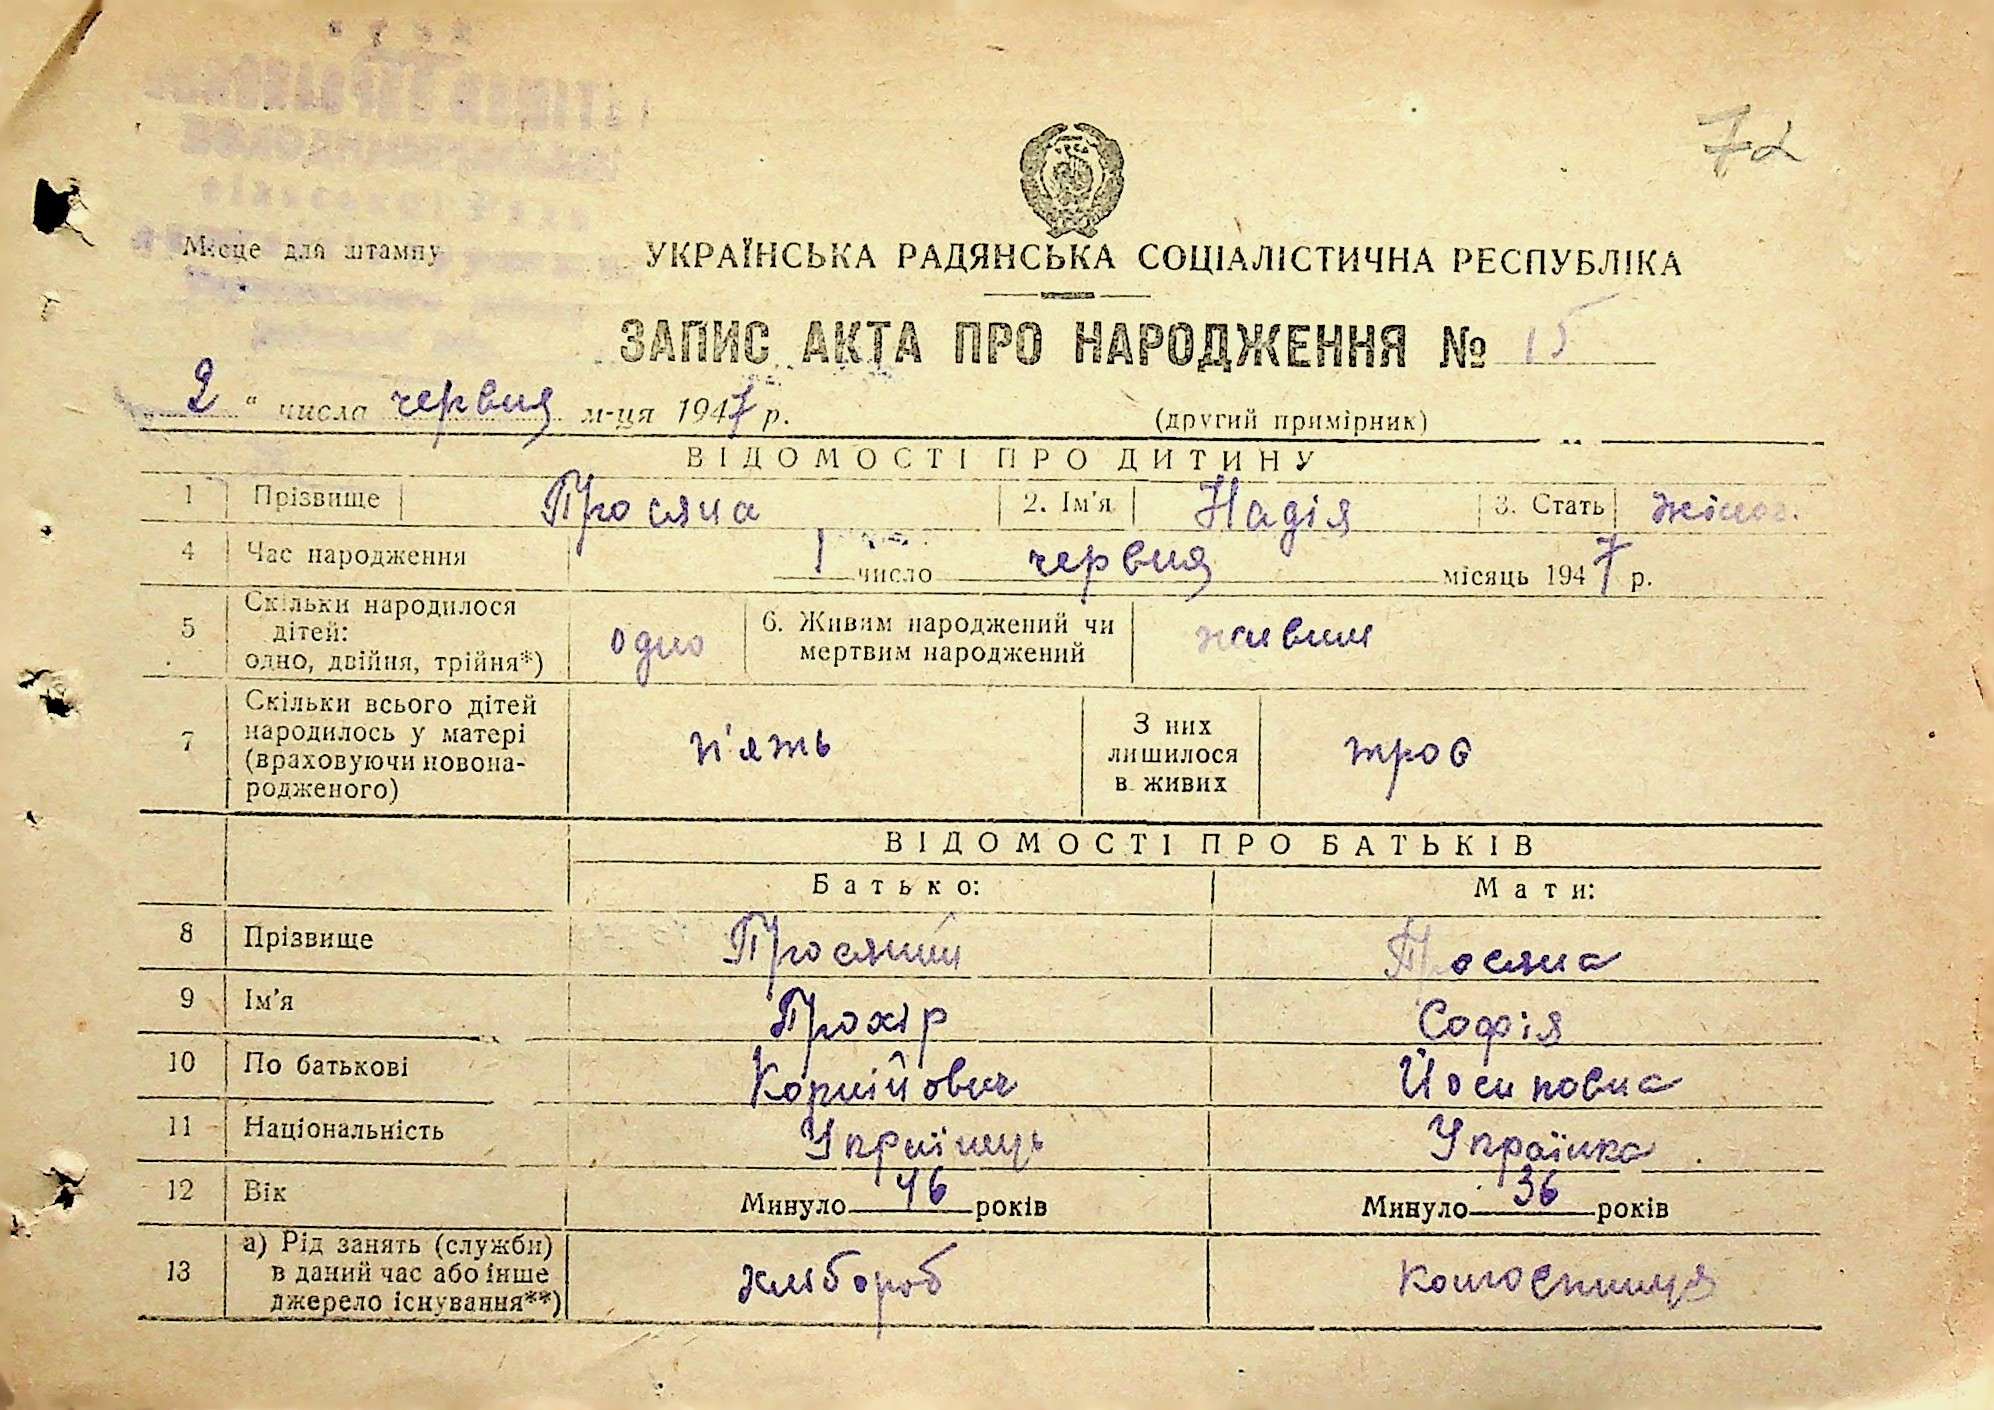 72
Місце для штампу
УКРАЇНСЬКА РАДЯНСЬКА СОЦІАЛІСТИЧНА РЕСПУБЛІКА
ЗАПИС АКТА ПРО НАРОДЖЕННЯ № 15
„ 2 “ числа червня м-ця 1947 р.
(другий примірник)
ВІДОМОСТІ ПРО ДИТИНУ
1 Прізвище Просяна 2. Ім'я Надія 3. Стать жіноч.
4 Час народження 1 число червня місяць 1947 р.
5 Скільки народилося
дітей:
одно, двійня, трійня*)
одно
6. Живим народжений чи
мертвим народжений
живим
7 Скільки всього дітей
народилось у матері
(враховуючи новона-
родженого)
п'ять
З них
лишилося
в живих
троє
ВІДОМОСТІ ПРО БАТЬКІВ
Батько: Мати:
8 Прізвище Просяний Просяна
9 Ім'я Прохір Софія
10 По батькові Корнійович Йосиповна
11 Національність Українець Українка
12 Вік Минуло 46 років Минуло 36 років
13 а) Рід занять (служби)
в даний час або інше
джерело існування**)
хлібороб колгоспниця